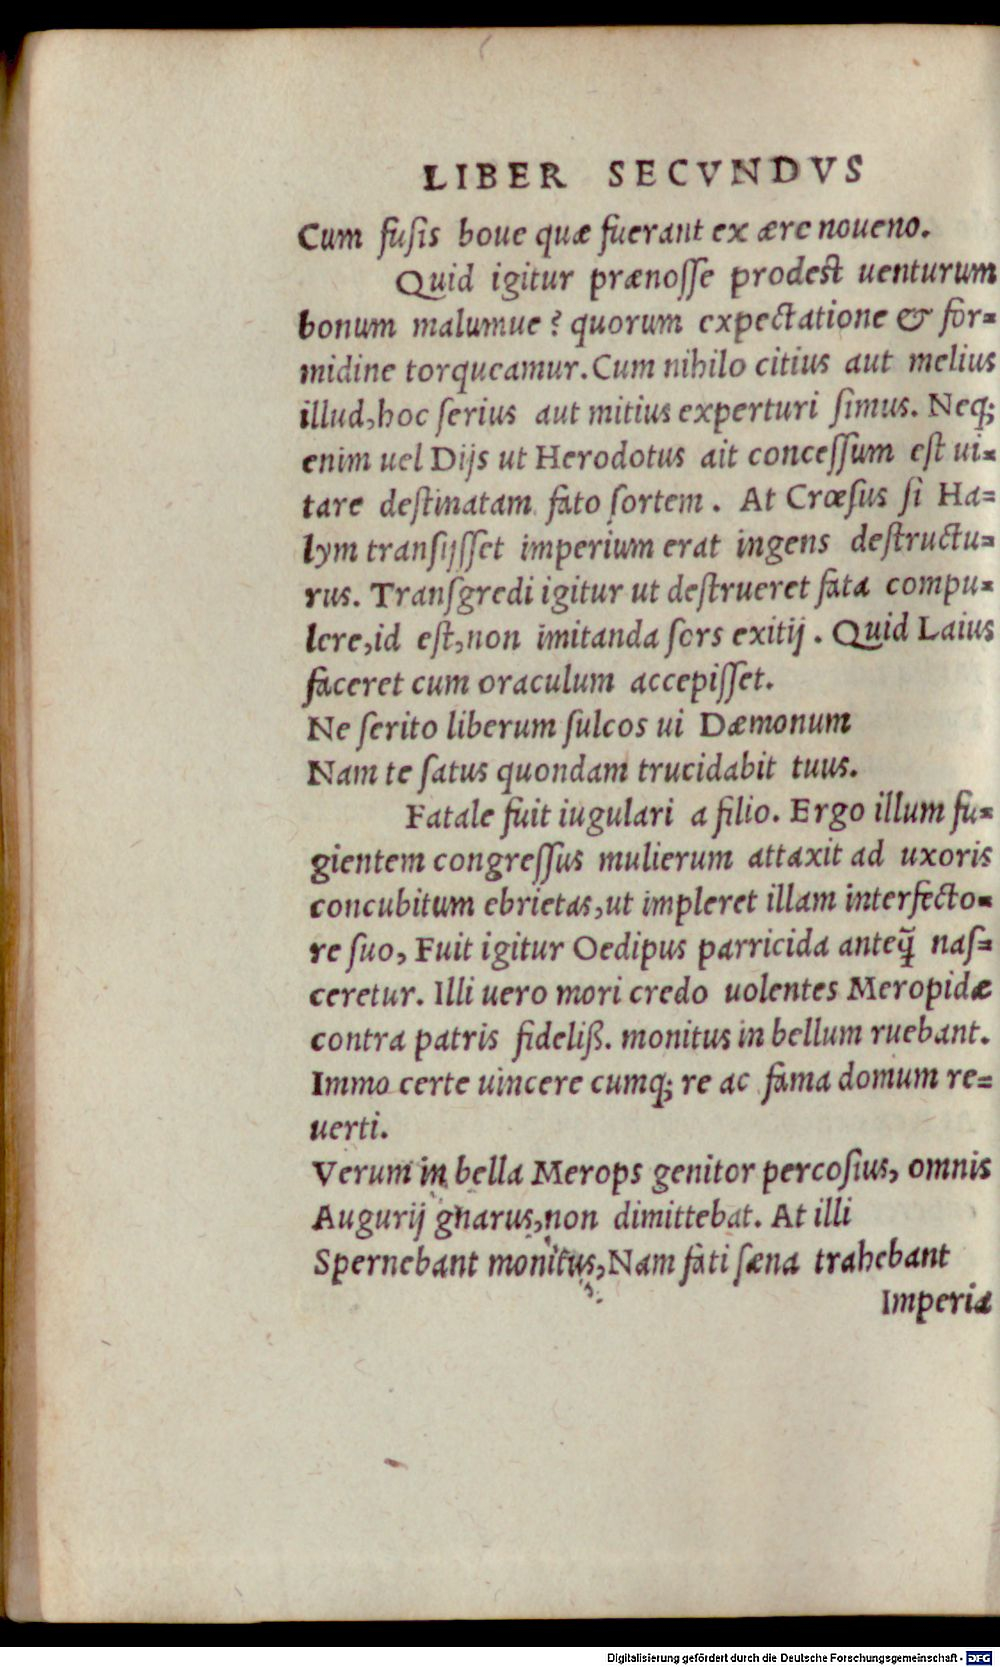 LIBER SECVNDVS
Cum fuſis boue quæ fuerant ex ære noueno.
Quid igitur prænoſſe prodest uenturum
bonum malumue? quorum expectatione & for-
midine torqueamur. Cum nihilo citius aut melius
illud, hoc ſerius aut mitius experturi ſimus. Neq;
enim uel Dijs ut Herodotus ait conceſſum eſt ui-
tare deſtinatam fato ſortem. At Crœſus ſi Ha-
lym tranſijſſet imperium erat ingens deſtructu-
rus. Tranſgredi igitur ut deſtrueret fata compu-
lere, id eſt, non imitanda ſors exitij. Quid Laius
faceret cum oraculum accepiſſet.
Ne ſerito liberum ſulcos ui Dæmonum
Nam te ſatus quondam trucidabit tuus.
Fatale fuit iugulari a filio. Ergo illum fu-
gientem congreſſus mulierum attaxit ad uxoris
concubitum ebrietas, ut impleret illam interfecto-
re ſuo, Fuit igitur Oedipus parricida anteq̃ naſ-
ceretur. Illi uero mori credo uolentes Meropidæ
contra patris fideliß. monitus in bellum ruebant.
Immo certe uincere cumq; re ac fama domum re-
uerti.
Verum in bella Merops genitor percoſius, omnis
Augurij gnarus, non dimittebat. At illi
Spernebant monitus, Nam fati ſæna trahebant
Imperia
Digitalisierung gefördert durch die Deutsche Forschungsgemeinschaft - DFG